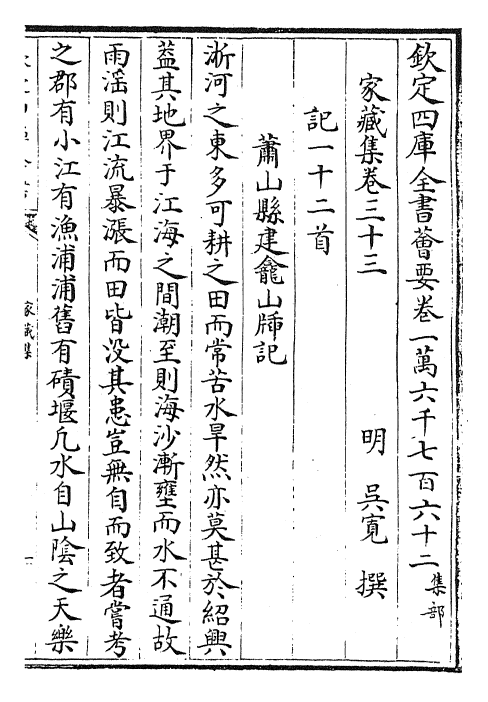 欽定四庫全書薈要卷一萬六千七百六十二 集部
家藏集卷三十三
明 吳寛 撰
記一十二首
蕭山縣建龕山牐記
淅河之東多可耕之田而常苦水旱然亦莫甚於紹興
葢其地界于江海之間潮至則海沙漸壅而水不通故
雨滛則江流暴漲而田皆没其患豈無自而致者嘗考
之郡有小江有漁浦浦舊有磧堰凡水自山陰之天樂
家藏集
一